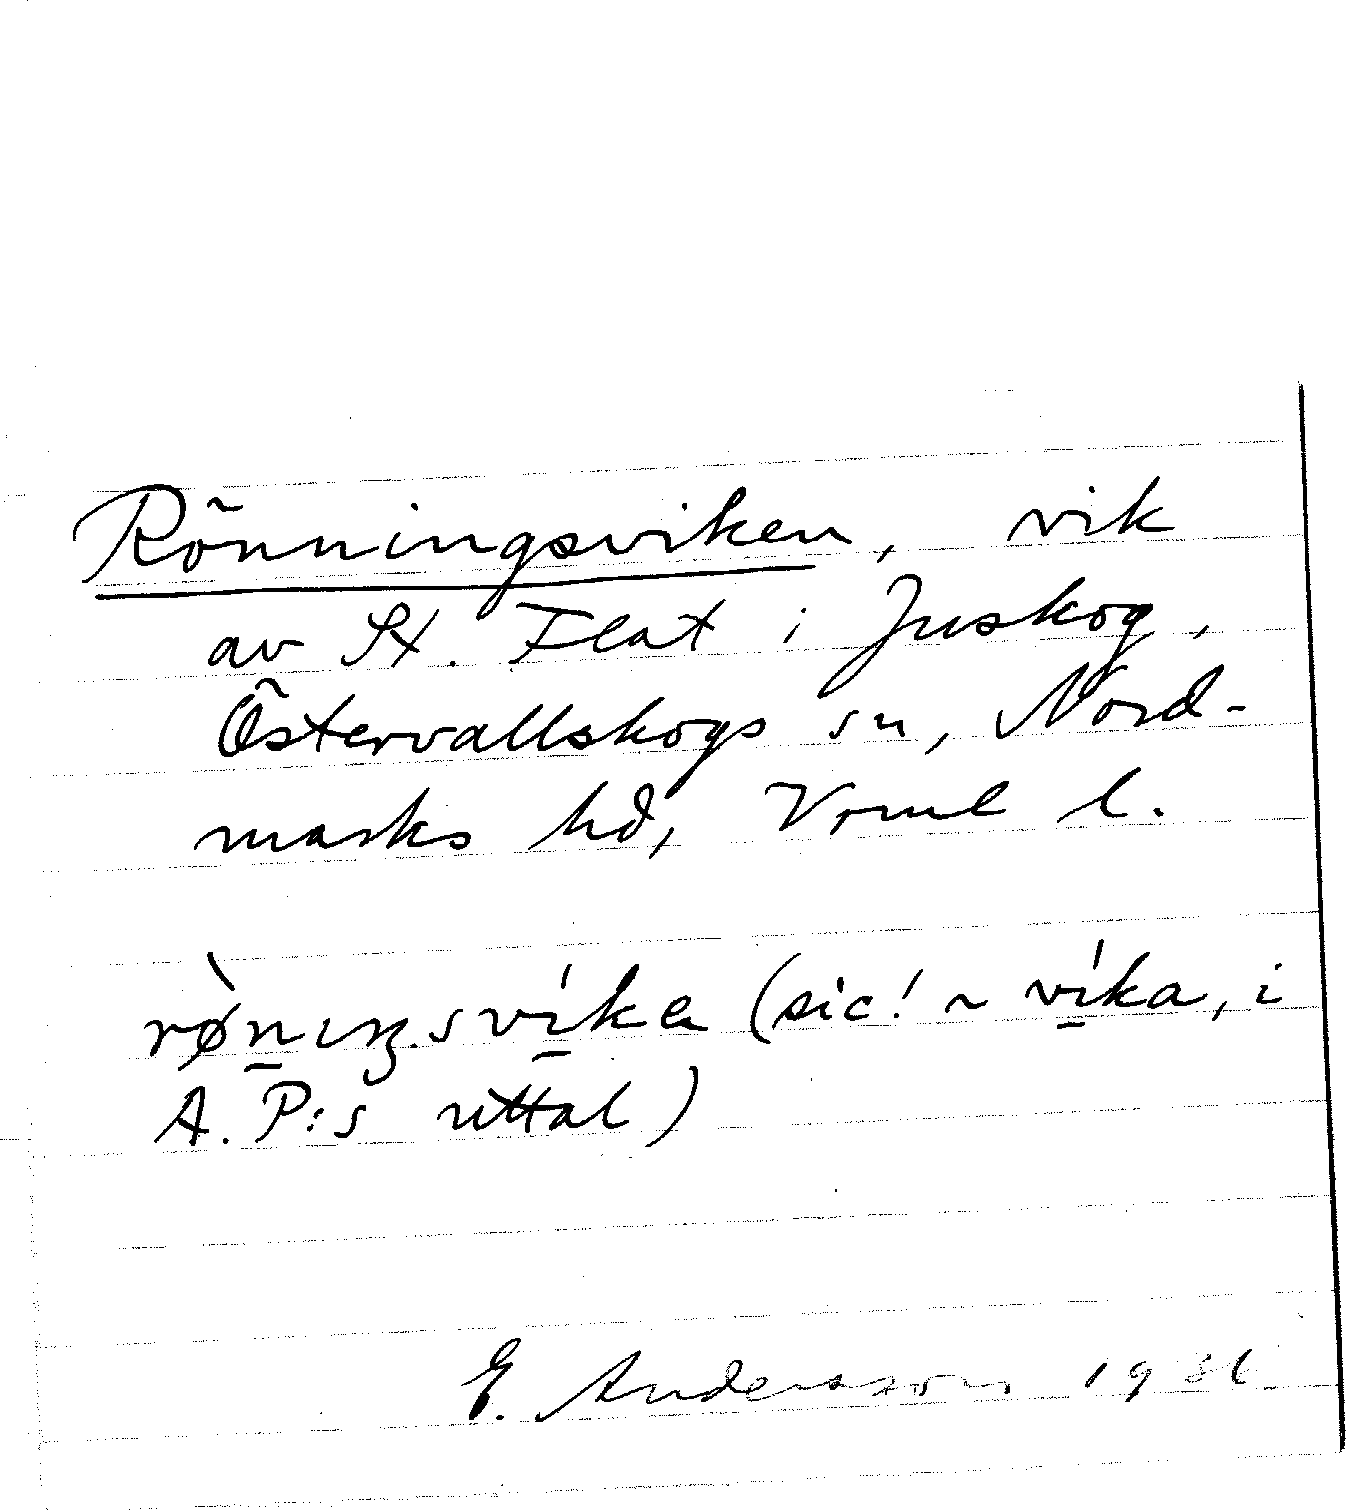 Rönningsviken, vik
av St. Flat i Juskog,
Östervallskogs sn, Nord-
marks hd, Vrml l.
rø̀nıŋsvíka (sic! ~ víka, i
A. P:s uttal)
E. Andersson 19